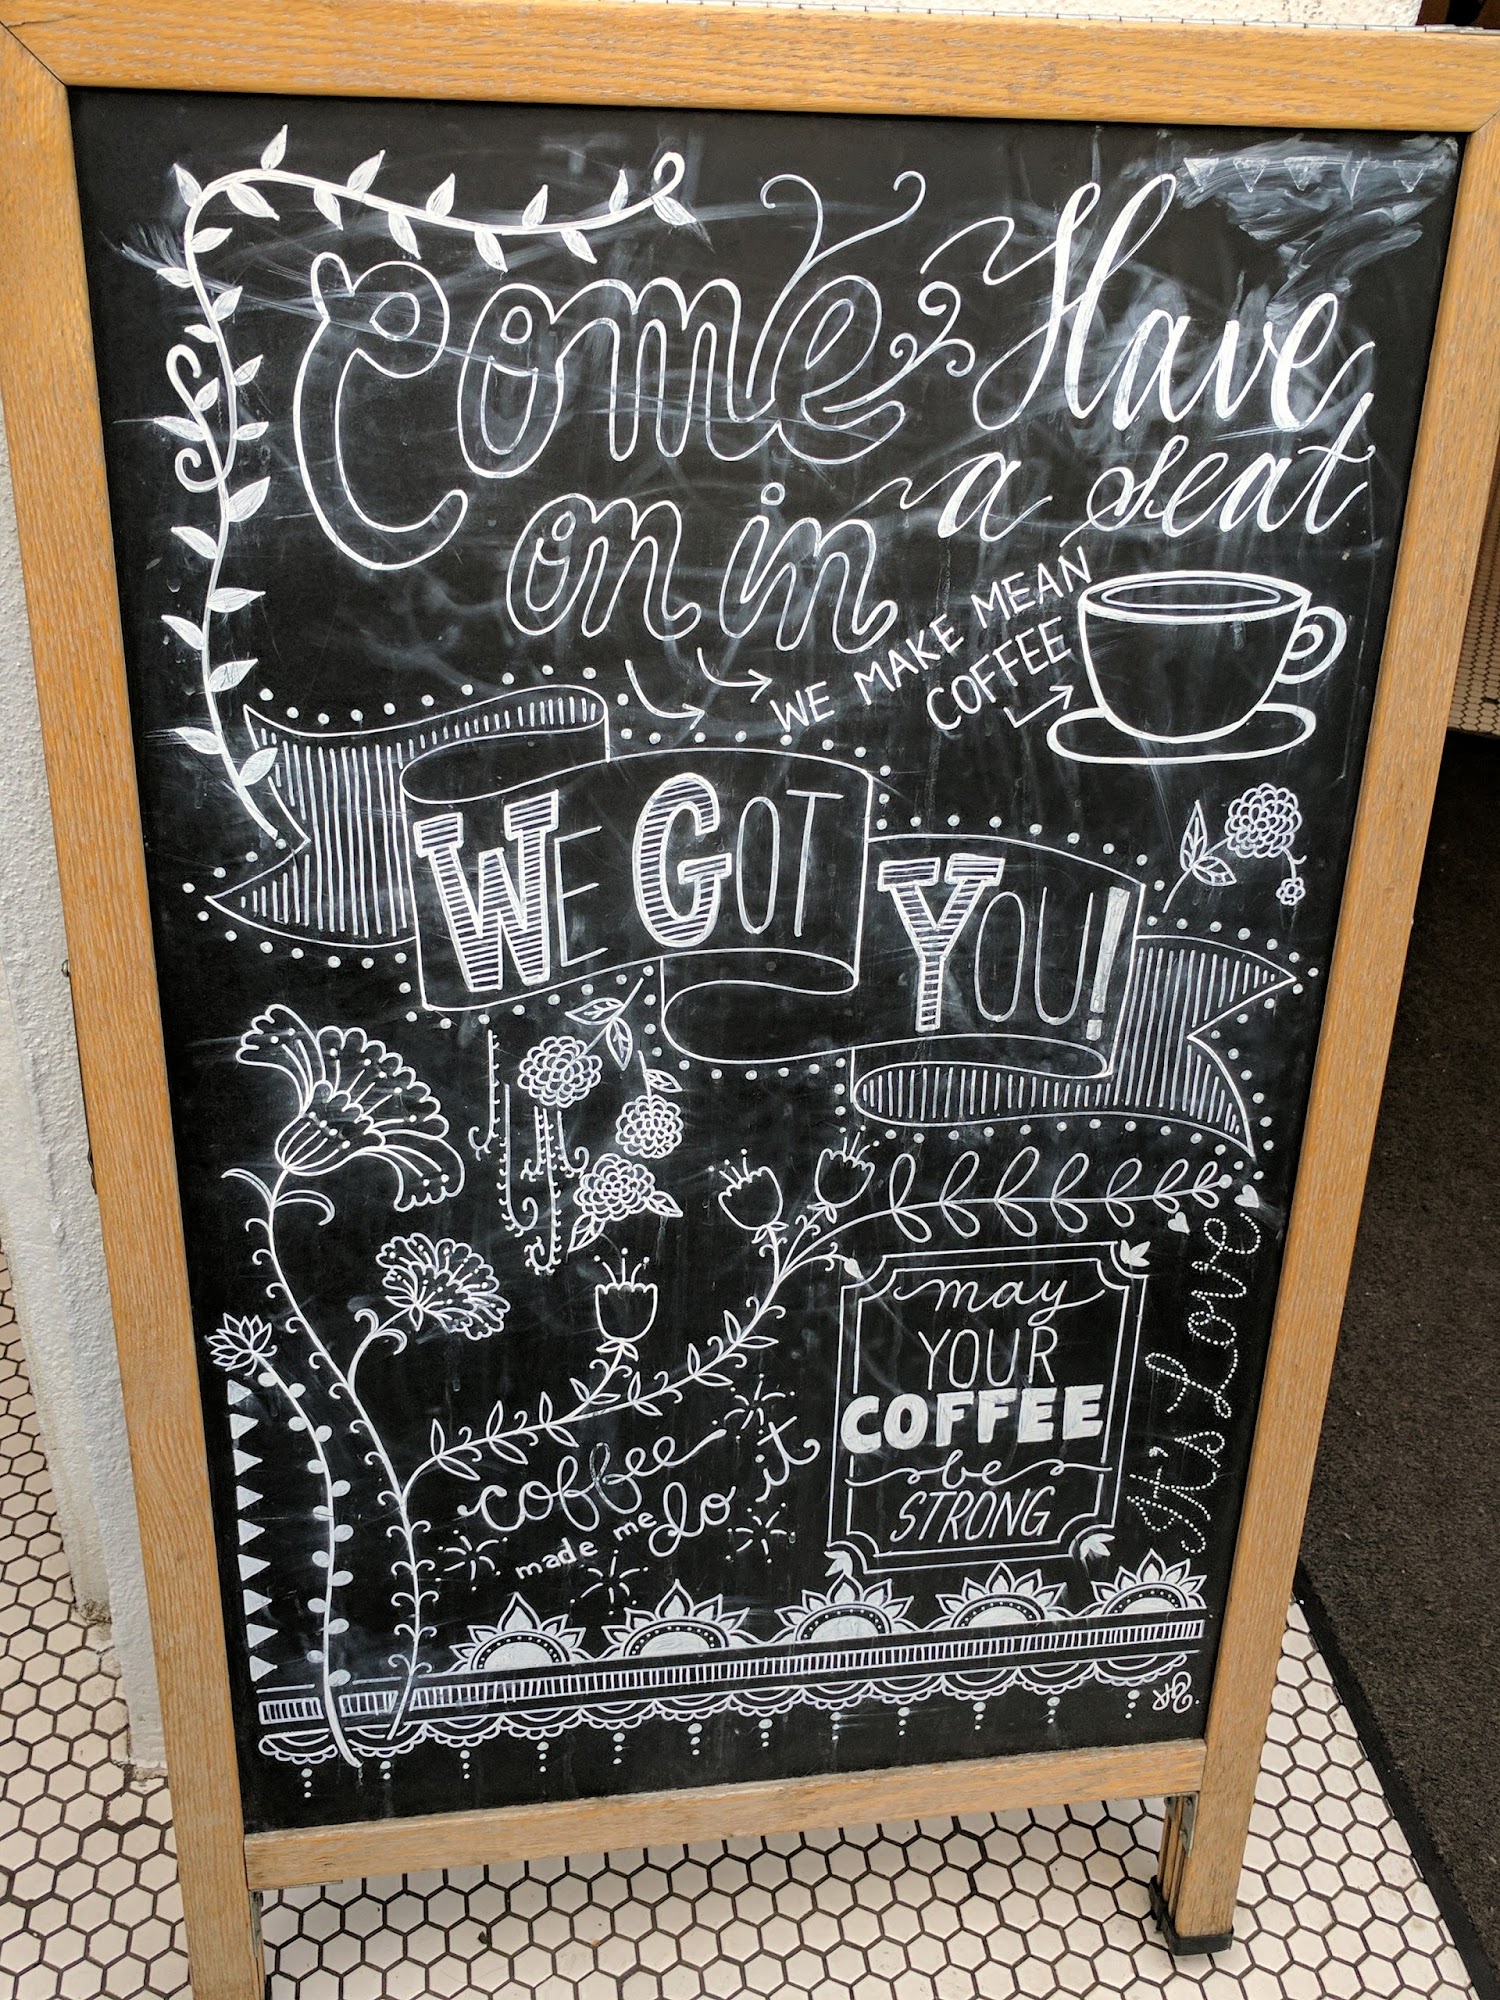 Come
on in
Have
a seat
WE MAKE MEAN
COFFEE
WE GOT
YOU!
coffee
made me
do it
may
YOUR
COFFEE
be
STRONG
It's Love